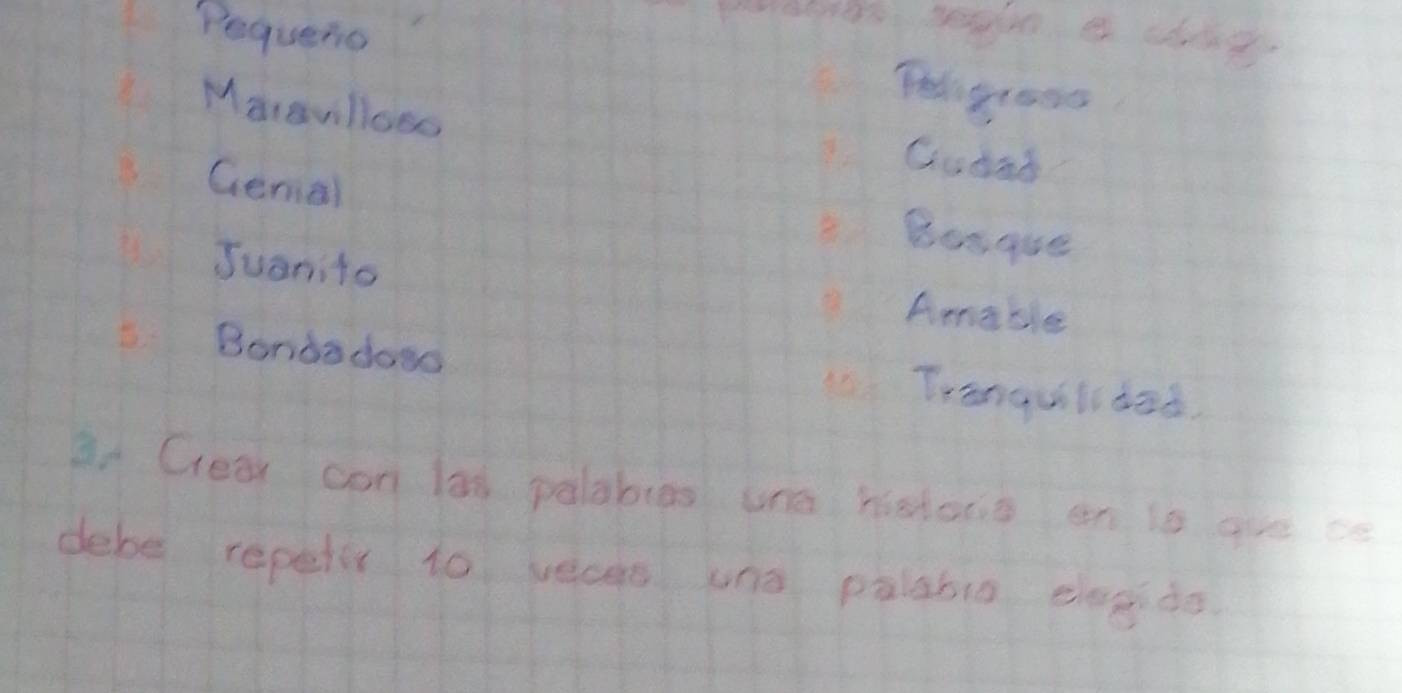 según
1. Pequeño
2. Maravilloso
3. Genial
4. Juanito
5. Bondadoso
6. Peligroso
7. Ciudad
8. Bosque
9. Amable
10. Tranquilidad.
3.- Crear con las palabras una historia en la que se
debe repetir 10 veces una palabra elegida.